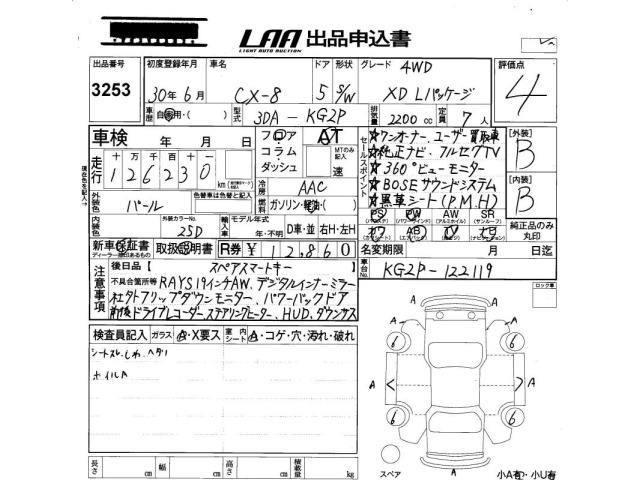 LAA 出品申込書
LIGHT AUTO AUCTION
出品番号 初度登録年月 車名 ドア 形状 グレード 4WD 評価点
3253 30年6月 CX-8 5 S/W XD Lパッケージ 4
車歴 自家用・( ) 型式 3DA-KG2P 排気量 2200cc 定員 7人
車検 年 月 日 フロア AT ☆ワンオーナー、ユーザー買取車 【外装】
コラム MTのみ記入 ☆純正ナビ・フルセグTV B
走行 十 万 千 百 十 ダッシュ 速 セールスポイント ☆360°ビューモニター
126230 km 冷房 AAC ☆BOSEサウンドシステム 【内装】
外装色 パール 色替車は色替と記入 燃料 ガソリン・軽油・( ) ☆黒革シート(P,M,H) B
外装カラーNo. 25D 輸入車 モデル年式 年・不明 D車・並 右H・左H
PS PW AW SR 純正品のみ丸印
カワ AB TV ナビ
新車保証書 取扱説明書 R券 ¥12,860 名変期限 月 日迄
ディーラー印のあるもの (預託金合計)
車台No. KG2P-122119
注意事項 後日品【 スペアスマートキー
不具合箇所等 RAYS19インチAW、デジタルインナーミラー
社外フリップダウンモニター、パワーバックドア
前後ドライブレコーダー ステアリングヒーター、HUD、ダウンサス
ロック車
検査員記入 ガラス A・X要ス 室内シート A・コゲ・穴・汚れ・破れ
シートスレ、しわ、ヘタリ
ホイルA
A A
6 6
A A
6 6
A
スペア 小A有・小U有
長さ cm 幅 cm 高さ cm 積載量 kg